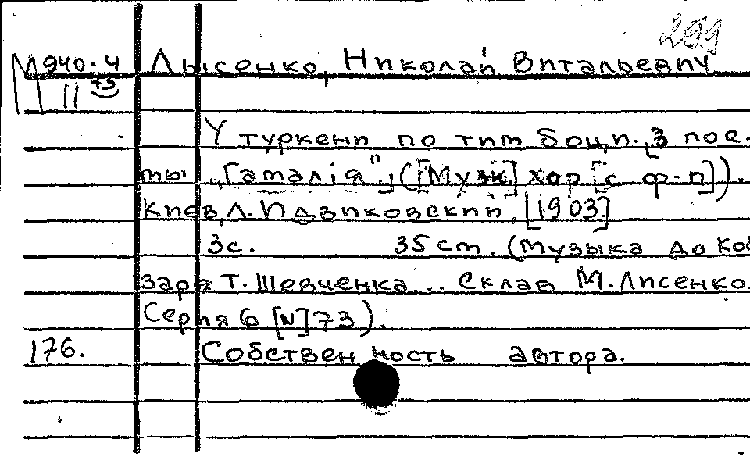 299
М940.4 Лысенко, Николай Витальевич
II
У туркені по тим боці, [З пое-
ми „Гамалія"]. ([Муж.] хор [с ф-п]).
Киев, Л. Идзиковский, [1903]
3с. 35 cm. (Музыка до Коб
заря Т. Шевченка... Склав М. Лисенко.
Серия 6 [N] 73).
176. Собственность автора.